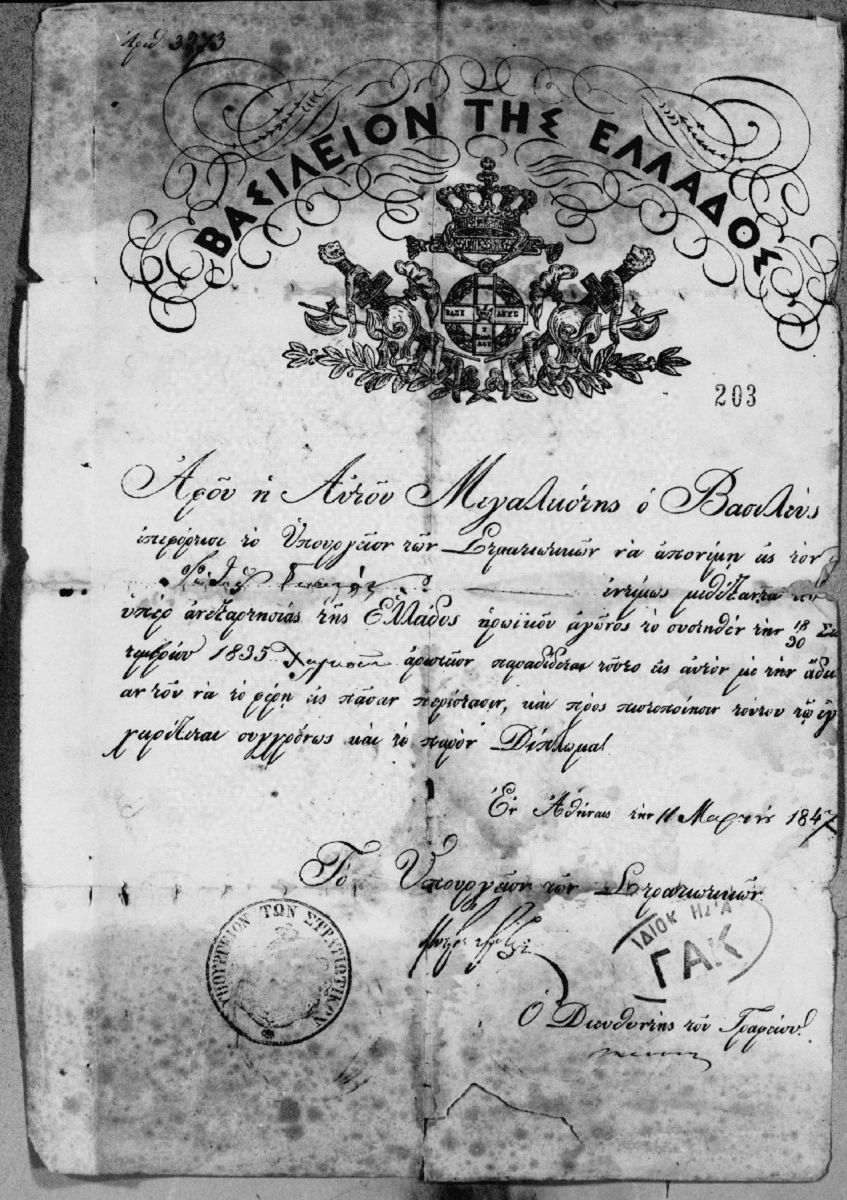 Ἀριθ 3273
ΒΑΣΙΛΕΙΟΝ ΤΗΣ ΕΛΛΑΔΟΣ
203
Ἀφοῦ ἡ Αὐτοῦ Μεγαλειότης ὁ Βασιλεὺς
ἐπεφόρτισε τὸ Ὑπουργεῖον τῶν Στρατιωτικῶν νὰ ἀπονέμῃ εἰς τὸν
ἐντίμως μεθέξαντα
ὑπὲρ ἀνεξαρτησίας τῆς Ἑλλάδος ἡρωϊκοῦ ἀγῶνος τὸ συστηθὲν τὴν 18/30 Σε
πτεμβρίου 1835 ἀριστεῖον παραδίδεται τοῦτο εἰς αὐτὸν μὲ τὴν ἄδει
αν τοῦ νὰ τὸ φέρῃ εἰς πᾶσαν περίστασιν, καὶ πρὸς πιστοποίησιν τούτου τῷ ἐγ
χειρίζεται συγχρόνως καὶ τὸ παρὸν Δίπλωμα
Ἐν Ἀθήναις τὴν 11 Μαρτίου 1847
Τὸ Ὑπουργεῖον τῶν Στρατιωτικῶν
ΥΠΟΥΡΓΕΙΟΝ ΤΩΝ ΣΤΡΑΤΙΩΤΙΚΩΝ
ΓΑΚ
Ὁ Διευθυντὴς τοῦ Γραφείου